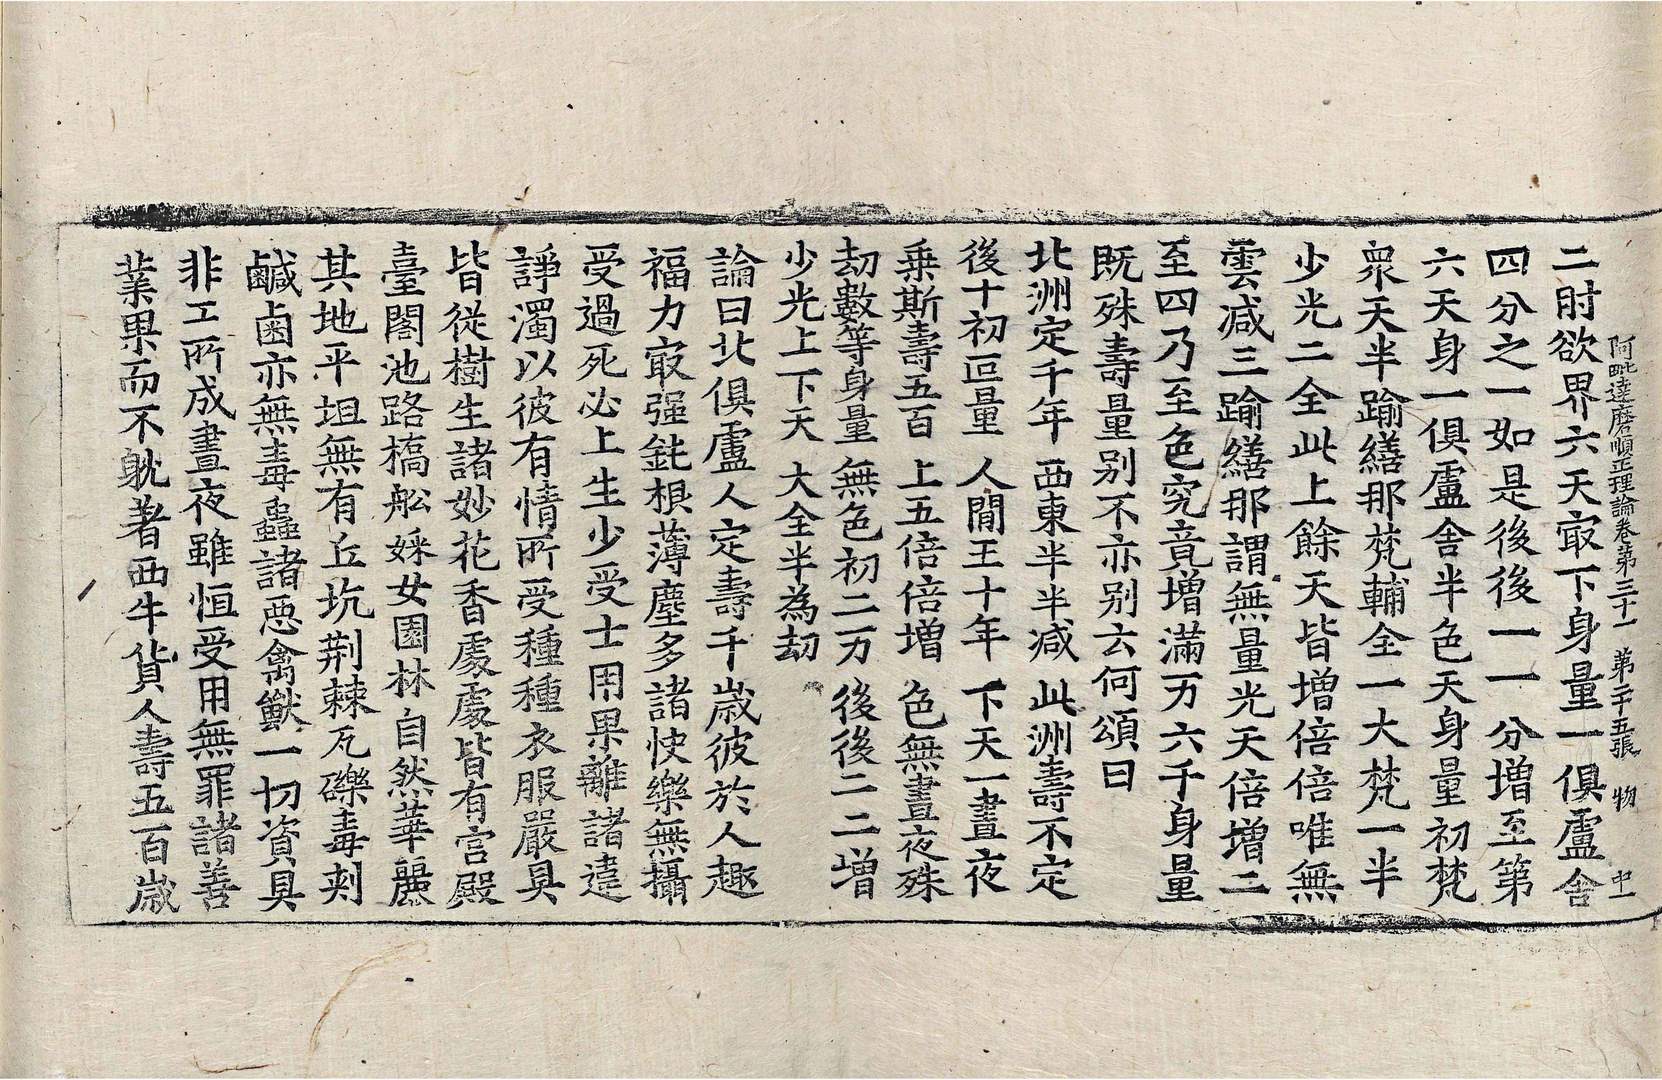 阿毗達磨順正理論卷第三十一 第二十五張 物 中一
二肘欲界六天㝡下身量一俱盧舍
四分之一如是後後一一分增至第
六天身一俱盧舍半色天身量初梵
衆天半踰繕那梵輔全一大梵一半
少光二全此上餘天皆增倍倍唯無
雲减三踰繕那謂無量光天倍增二
至四乃至色究竟增滿万六千身量
既殊壽量别不亦别云何頌曰
北洲定千年 西東半半减 此洲壽不定
後十初叵量 人閒五十年 下天一晝夜
乗斯壽五百 上五倍倍增 色無晝夜殊
劫數等身量 無色初二万 後後二二增
少光上下天 大全半為劫
論曰北俱盧人定壽千歲彼於人趣
福力㝡强鈍根薄塵多諸快樂無攝
受過死必上生少受士用果離諸違
諍濁以彼有情所受種種衣服嚴具
皆從樹生諸妙花香處處皆有宮殿
臺閣池路橋舩婇女園林自然華麗
其地平坦無有丘坑荆棘瓦礫毒刺
鹹鹵亦無毒蟲諸惡禽獸一切資具
非工所成晝夜雖恒受用無罪諸善
業果而不躭著西牛貨人壽五百歲